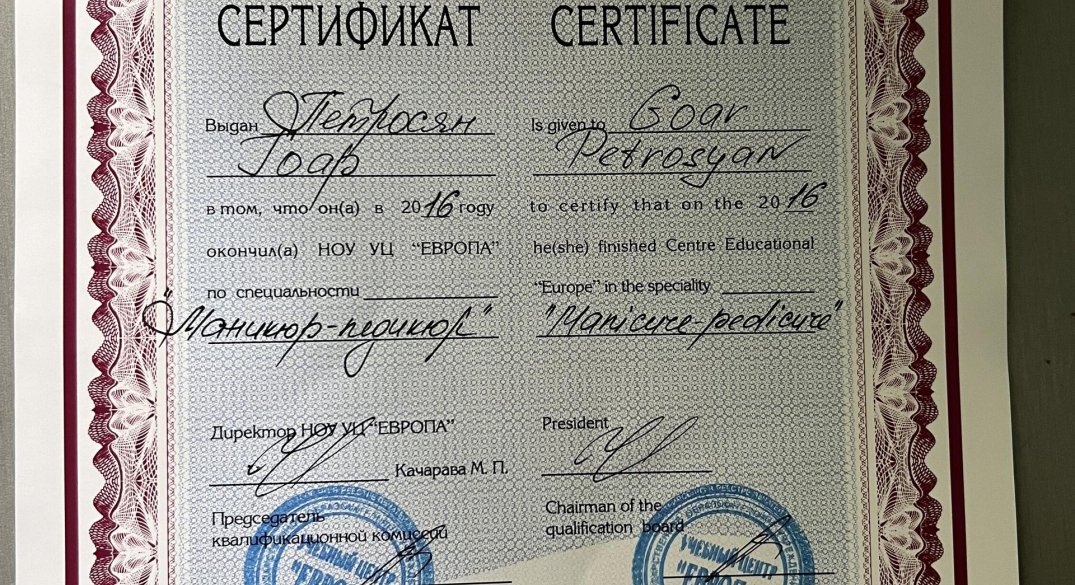 СЕРТИФИКАТ
Выдан Петросян
Гоар
в том, что он(а) в 2016 году
окончил(а) НОУ УЦ "ЕВРОПА"
по специальности
"Маникюр-педикюр"
Директор НОУ УЦ "ЕВРОПА"
Качарава М. П.
Председатель
квалификационной комиссии
УЧЕБНЫЙ ЦЕНТР
CERTIFICATE
Is given to Goar
Petrosyan
to certify that on the 2016
he(she) finished Centre Educational
"Europe" in the speciality
"Manicure-pedicure"
President
Chairman of the
qualification board
УЧЕБНЫЙ ЦЕНТР